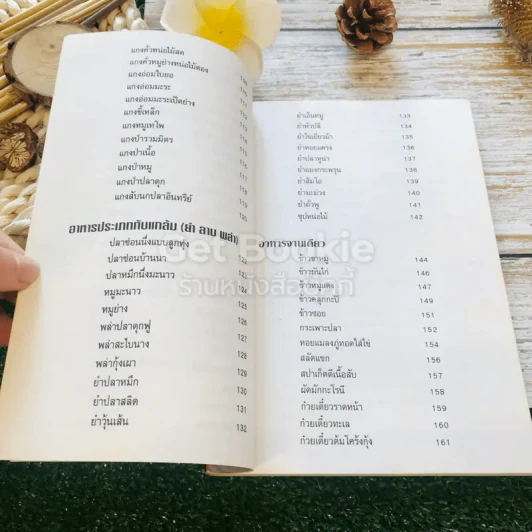 แกงคั่วหน่อไม้สด
แกงคั่วหมูย่างหน่อไม้ดอง
แกงอ่อมใบยอ 109
แกงอ่อมมะระ 110
แกงอ่อมมะระเป็ดย่าง 111
แกงขี้เหล็ก 112
แกงหมูเทโพ 113
แกงป่ารวมมิตร 114
แกงป่าเนื้อ 115
แกงป่าหมู 117
แกงป่าปลาดุก 118
แกงสับนกปลาอินทรีย์ 119
120
อาหารประเภทกับแกล้ม (ยำ ลาบ พล่า)
ปลาช่อนนึ่งแบบลูกทุ่ง
ปลาช่อนบ้านนา 122
ปลาหมึกนึ่งมะนาว 123
หมูมะนาว
หมูย่าง 125
พล่าปลาดุกฟู 126
พล่าสะใบนาง 127
พล่ากุ้งเผา 128
ยำปลาหมึก 129
ยำปลาสลิด 130
ยำวุ้นเส้น 131
132
ยำเอ็นหมู 133
ยำหัวปลี 134
ยำไข่เยี่ยวม้า 135
ยำหอยแครง 136
ยำปลาทูน่า 137
ยำแมงกะพรุน 138
ยำส้มโอ 139
ยำมะม่วง 140
ยำถั่วพู 141
ซุปหน่อไม้ 142
อาหารจานเดียว
ข้าวขาหมู 144
ข้าวมันไก่ 146
ข้าวหมูแดง 147
ข้าวคลุกกะปิ 149
ข้าวซอย 151
กระเพาะปลา 152
หอยแมลงภู่ทอดใส่ไข่ 154
สลัดแขก 156
สปาเก็ตตี้เนื้อสับ 157
ผัดมักกะโรนี 158
ก๋วยเตี๋ยวราดหน้า 159
ก๋วยเตี๋ยวทะเล 160
ก๋วยเตี๋ยวต้มโคร้งกุ้ง 161
Get Bookie
ร้านหนังสือบุ๊กกี้